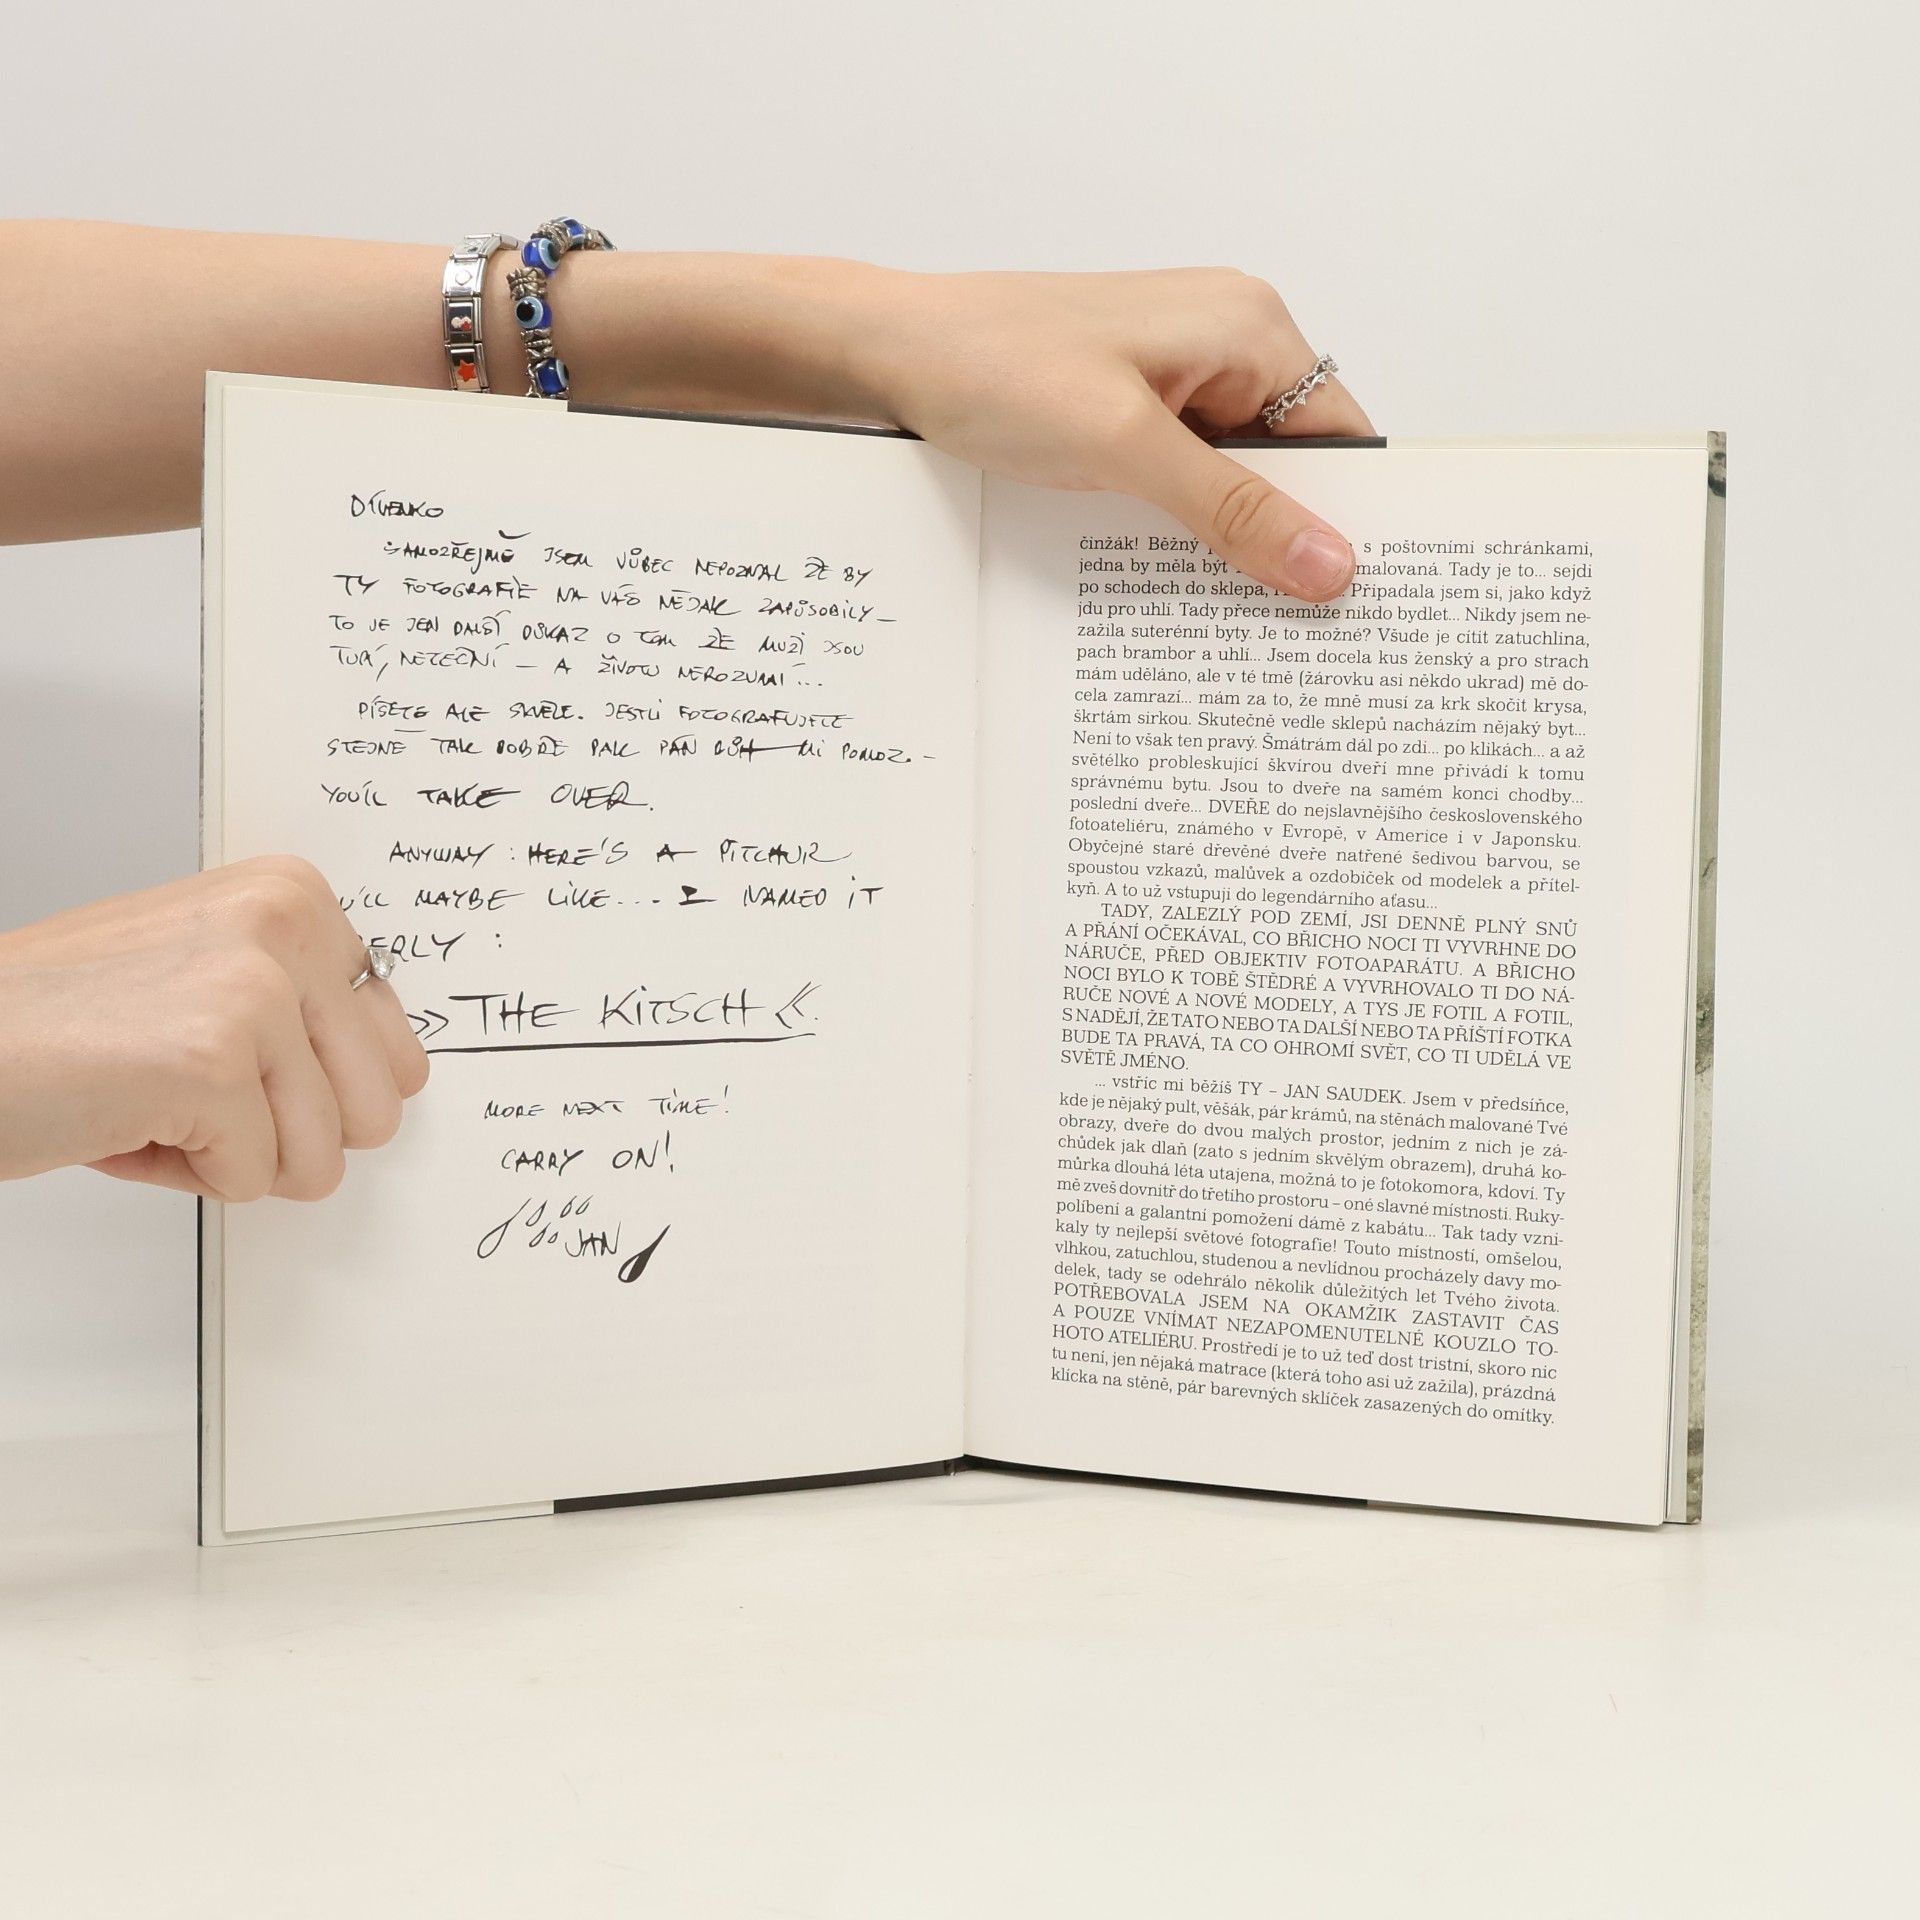 DÍVENKO
SAMOZŘEJMĚ JSEM VŮBEC NEPOZNAL ŽE BY
TY FOTOGRAFIE NA VÁS NĚJAK ZAPŮSOBILY –
TO JE JEN DALŠÍ DŮKAZ O TOM ŽE MUŽI JSOU
TUPÍ, NETEČNÍ – A ŽIVOTU NEROZUMÍ...
PÍŠETE ALE SKVĚLE. JESTLI FOTOGRAFUJETE
STEJNĚ TAK DOBŘE PAK PÁN BŮH MI POMOZ. –
YOU'LL TAKE OVER.
ANYWAY : HERE'S A PITCHUR
MAYBE LIKE... I NAMED IT
:
» THE KITSCH «.
MORE NEXT TIME!
CARRY ON!
JAN
činžák! Běžný s poštovními schránkami,
jedna by měla být malovaná. Tady je to... sejdi
po schodech do sklepa, Připadala jsem si, jako když
jdu pro uhlí. Tady přece nemůže nikdo bydlet... Nikdy jsem ne-
zažila suterénní byty. Je to možné? Všude je cítit zatuchlina,
pach brambor a uhlí... Jsem docela kus ženský a pro strach
mám uděláno, ale v té tmě (žárovku asi někdo ukrad) mě do-
cela zamrazí... mám za to, že mně musí za krk skočit krysa,
škrtám sirkou. Skutečně vedle sklepů nacházím nějaký byt...
Není to však ten pravý. Šmátrám dál po zdi... po klikách... a až
světélko probleskující škvírou dveří mne přivádí k tomu
správnému bytu. Jsou to dveře na samém konci chodby...
poslední dveře... DVEŘE do nejslavnějšího československého
fotoateliéru, známého v Evropě, v Americe i v Japonsku.
Obyčejné staré dřevěné dveře natřené šedivou barvou, se
spoustou vzkazů, malůvek a ozdobiček od modelek a přítel-
kyň. A to už vstupuji do legendárního aťasu...
TADY, ZALEZLÝ POD ZEMÍ, JSI DENNĚ PLNÝ SNŮ
A PŘÁNÍ OČEKÁVAL, CO BŘICHO NOCI TI VYVRHNE DO
NÁRUČE, PŘED OBJEKTIV FOTOAPARÁTU. A BŘICHO
NOCI BYLO K TOBĚ ŠTĚDRÉ A VYVRHOVALO TI DO NÁ-
RUČE NOVÉ A NOVÉ MODELY, A TYS JE FOTIL A FOTIL,
S NADĚJÍ, ŽE TATO NEBO TA DALŠÍ NEBO TA PŘÍŠTÍ FOTKA
BUDE TA PRAVÁ, TA CO OHROMÍ SVĚT, CO TI UDĚLÁ VE
SVĚTĚ JMÉNO.
... vstříc mi běžíš TY – JAN SAUDEK. Jsem v předsíňce,
kde je nějaký pult, věšák, pár krámů, na stěnách malované Tvé
obrazy, dveře do dvou malých prostor, jedním z nich je zá-
chůdek jak dlaň (zato s jedním skvělým obrazem), druhá ko-
můrka dlouhá léta utajena, možná to je fotokomora, kdoví. Ty
mě zveš dovnitř do třetího prostoru – oné slavné místnosti. Ruky-
políbení a galantní pomožení dámě z kabátu... Tak tady vzni-
kaly ty nejlepší světové fotografie! Touto místností, omšelou,
vlhkou, zatuchlou, studenou a nevlídnou procházely davy mo-
delek, tady se odehrálo několik důležitých let Tvého života.
POTŘEBOVALA JSEM NA OKAMŽIK ZASTAVIT ČAS
A POUZE VNÍMAT NEZAPOMENUTELNÉ KOUZLO TO-
HOTO ATELIÉRU. Prostředí je to už teď dost tristní, skoro nic
tu není, jen nějaká matrace (která toho asi už zažila), prázdná
klícka na stěně, pár barevných sklíček zasazených do omítky.